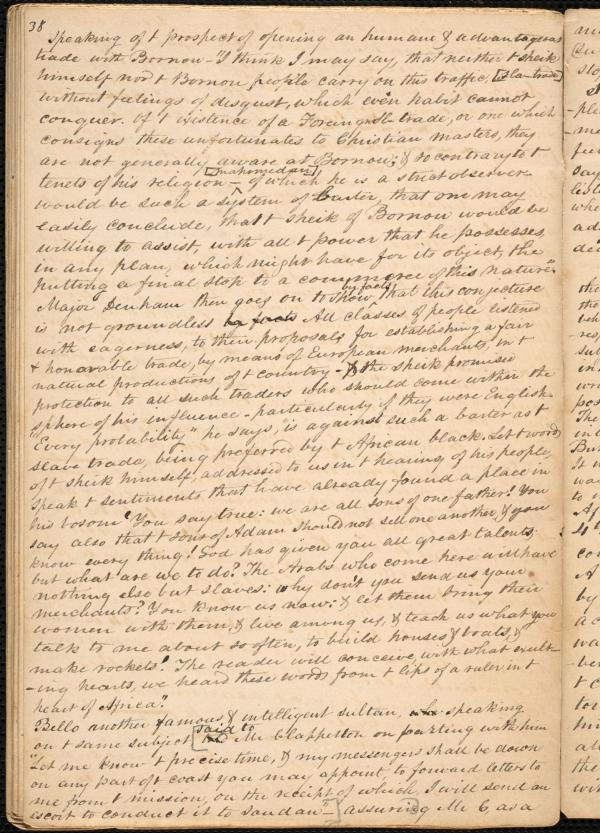 38
Speaking of t prospect of opening an humane & advantageous
trade with Bornou - "I think I may say, that neither t sheik
himself nor t Bornou people carry on this traffic, [sla-trade]
without feelings of disgust, which even habit cannot
conquer. Of t existence of a Foreign Sl. trade, or one which
consigns these unfortunates to Christian masters, they
are not generally aware at Bornou; & so contrary to t
[mahomedan]
tenets of his religion - of which he is a strict observer
would be such a system of barter, that one may
easily conclude, that t sheik of Bornou would be
willing to assist, with all t power that he possesses,
in any plan, which might have for its object, the
putting a final stop to a commerce of this nature."
by facts
Major Denham then goes on to show, that this conjecture
is not groundless by facts All classes of people listened
with eagerness, to their proposals for establishing a fair
& honorable trade, by means of European merchants, in t
natural productions of t country - & the sheik promised
protection to all such traders who should come within the
sphere of his influence - particularly if they were English.
"Every probability" he says, "is against such a barter as t
slave trade, being preferred by t African black. Let t words
of t sheik himself, addressed to us in t hearing of his people,
speak t sentiments that have already found a place in
his bosom! 'You say true: we are all sons of one father! You
say also that t sons of Adam should not sell one another, & you
know every thing! God has given you all great talents;
but what are we to do? The Arabs who come here will have
nothing else but slaves: why don't you send us your
merchants? You know us now: & let them bring their
women with them, & live among us, & teach us what you
talk to me about so often, to build houses & boats, &
make rockets! The reader will conceive, with what exult-
-ing hearts, we heard these words from t lips of a ruler in t
heart of Africa".
Bello another famous & intelligent sultan, who speaking
said to
on t same subject [ Mr Clapperton on parting with him
"Let me know t precise time, & my messengers shall be down
on any part of t coast you may appoint, to forward letters to
me from t mission, on the receipt of which, I will send an
escort to conduct it to Soudan" -] assuring Mr C as a